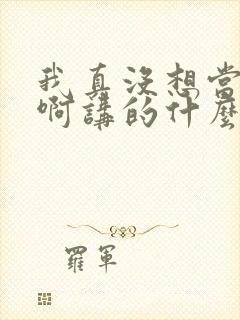 我真沒想當
啊講的什麼
羅軍